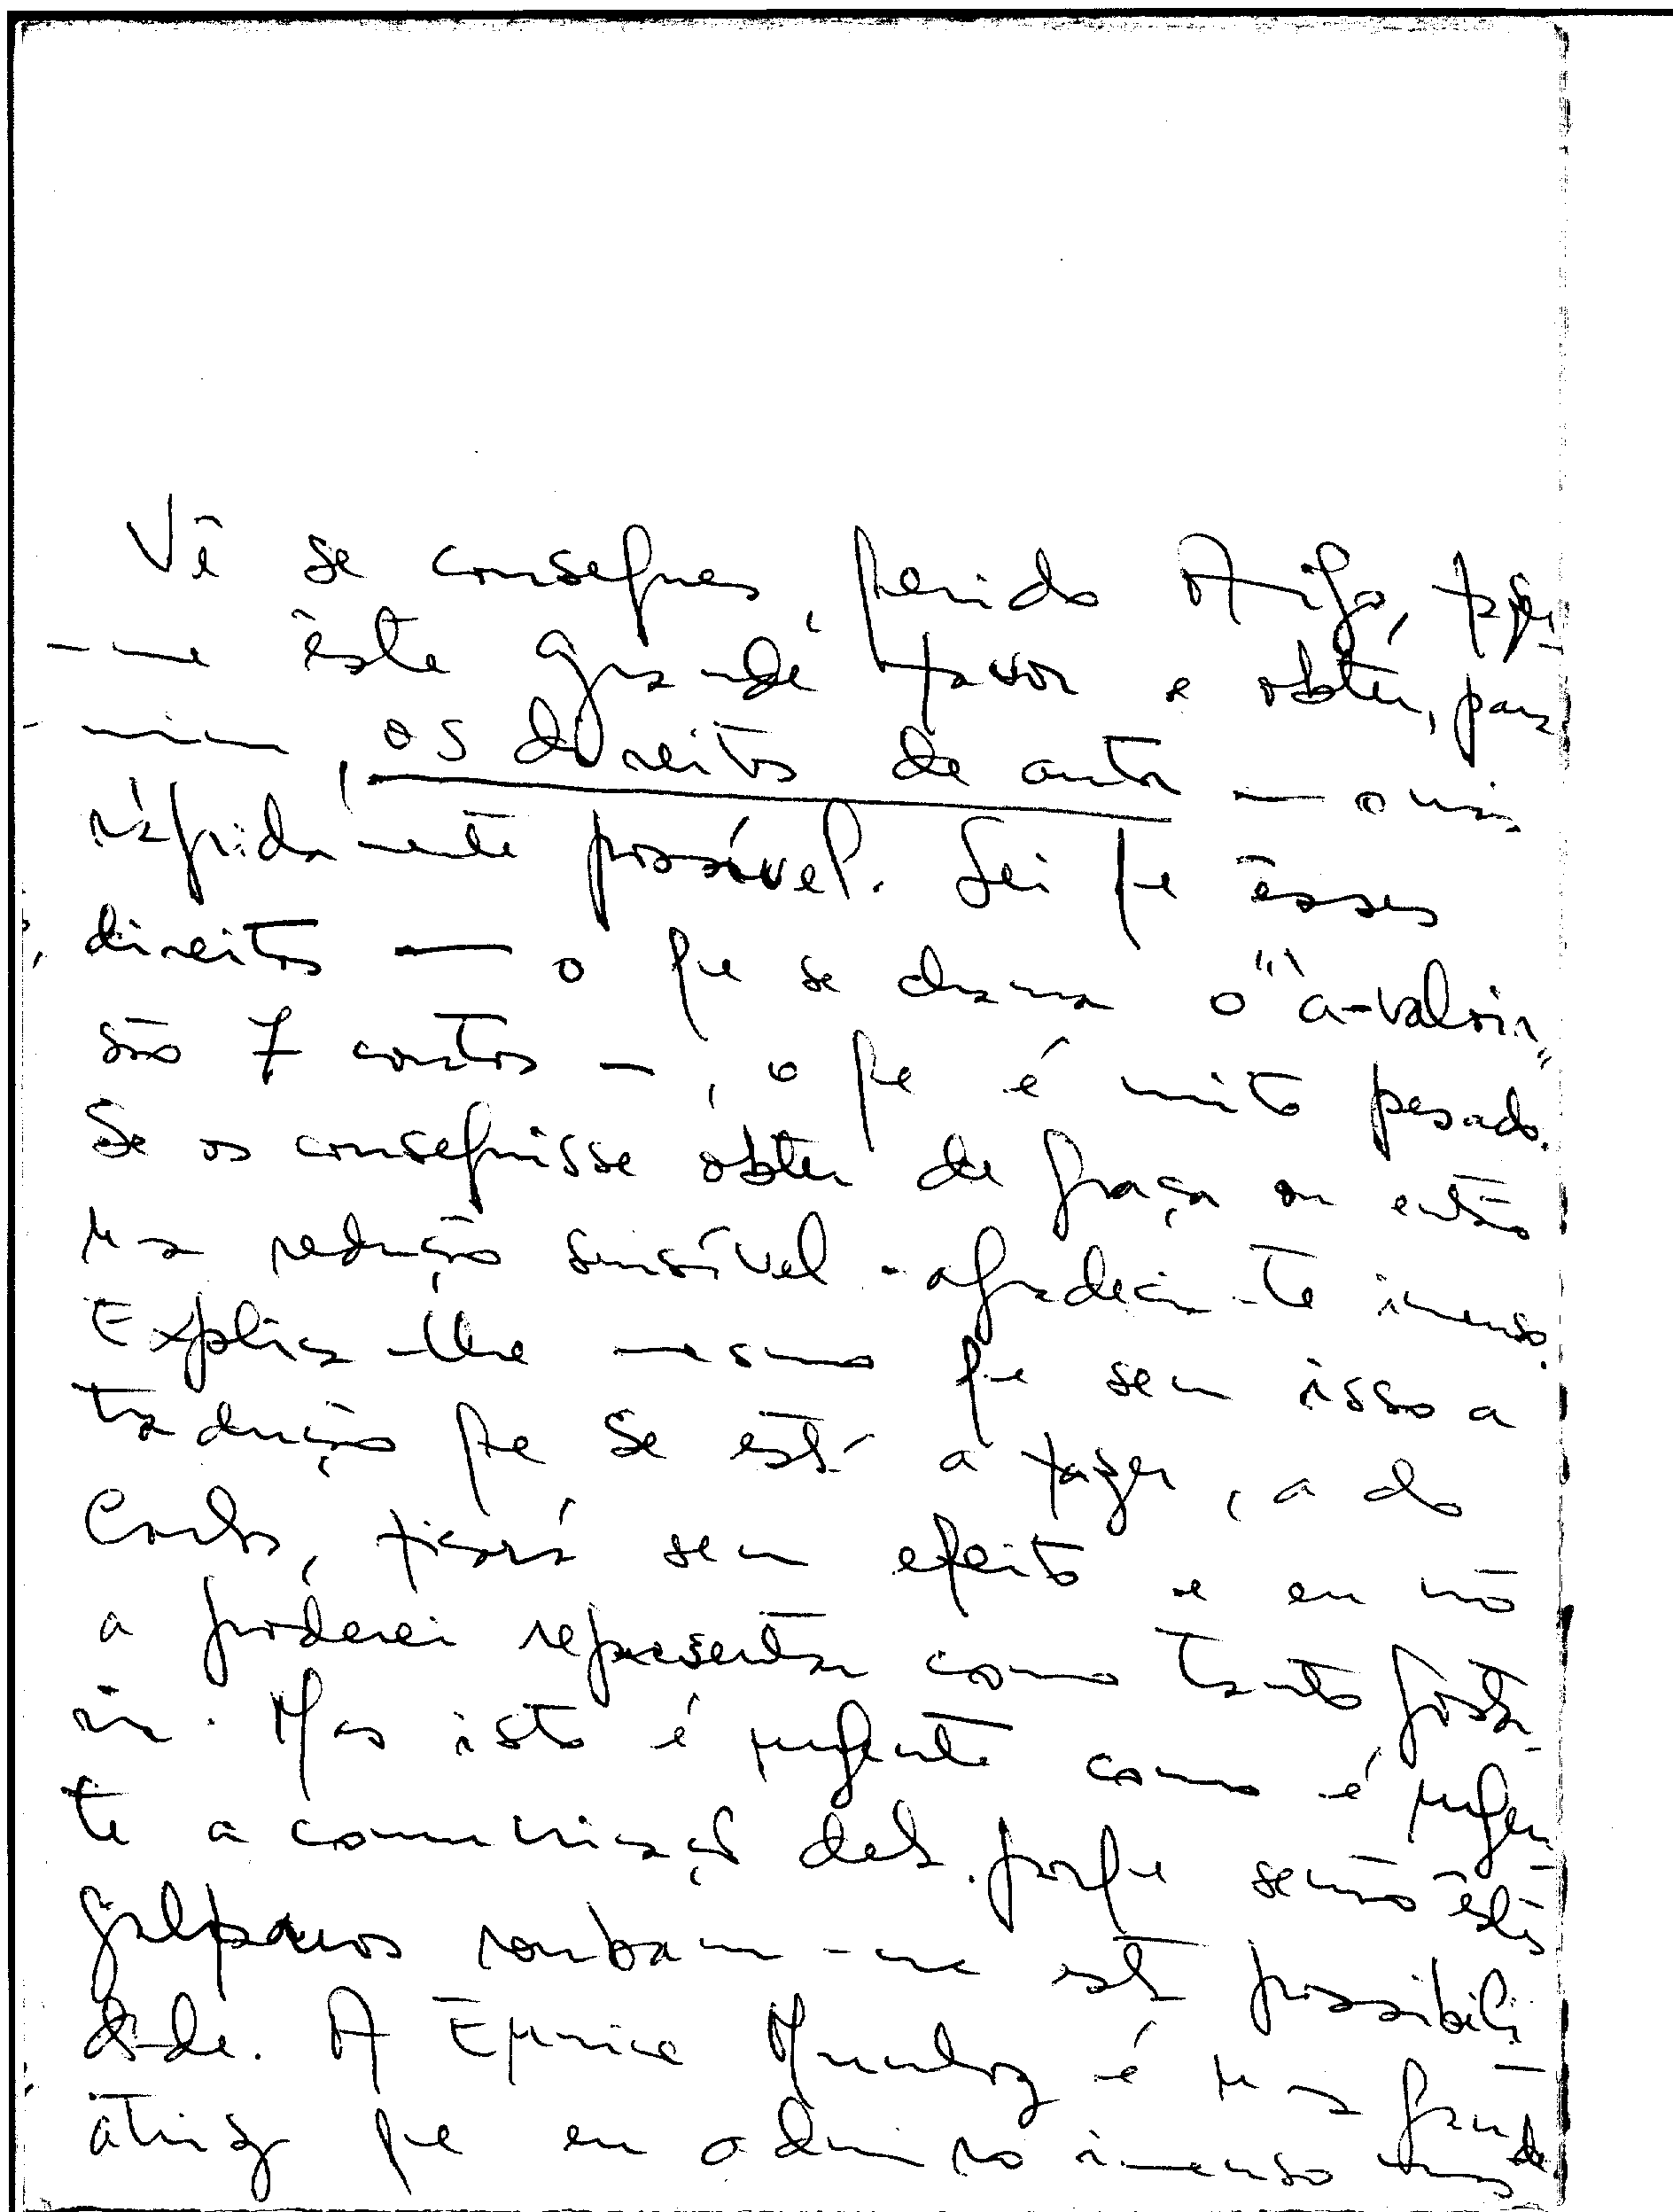 Vê se consegues, querido Amigo, fazer-
-me êste grande favor e obter, para
mim, os direitos de autor — o mais
ràpidamente possível. Sei que êsses
direitos — o que se chama o "à-valoir"
são 7 contos —, o que é muito pesado.
Se os conseguisse obter de graça ou então
uma redução sensível - agradecia-te imenso.
Explica-lhe mesmo que sem isso a
tradução que se está a fazer, a do
Carlos, ficará sem efeito e eu não
a poderei representar como tanto gosta-
ria. Mas isto é urgente como é urgen-
te a comunicação dela. porque senão êstes
galpanos roubam-me esta possibili-
dade. A Eunice Munhoz é uma grande
atriz que eu admiro imenso mas